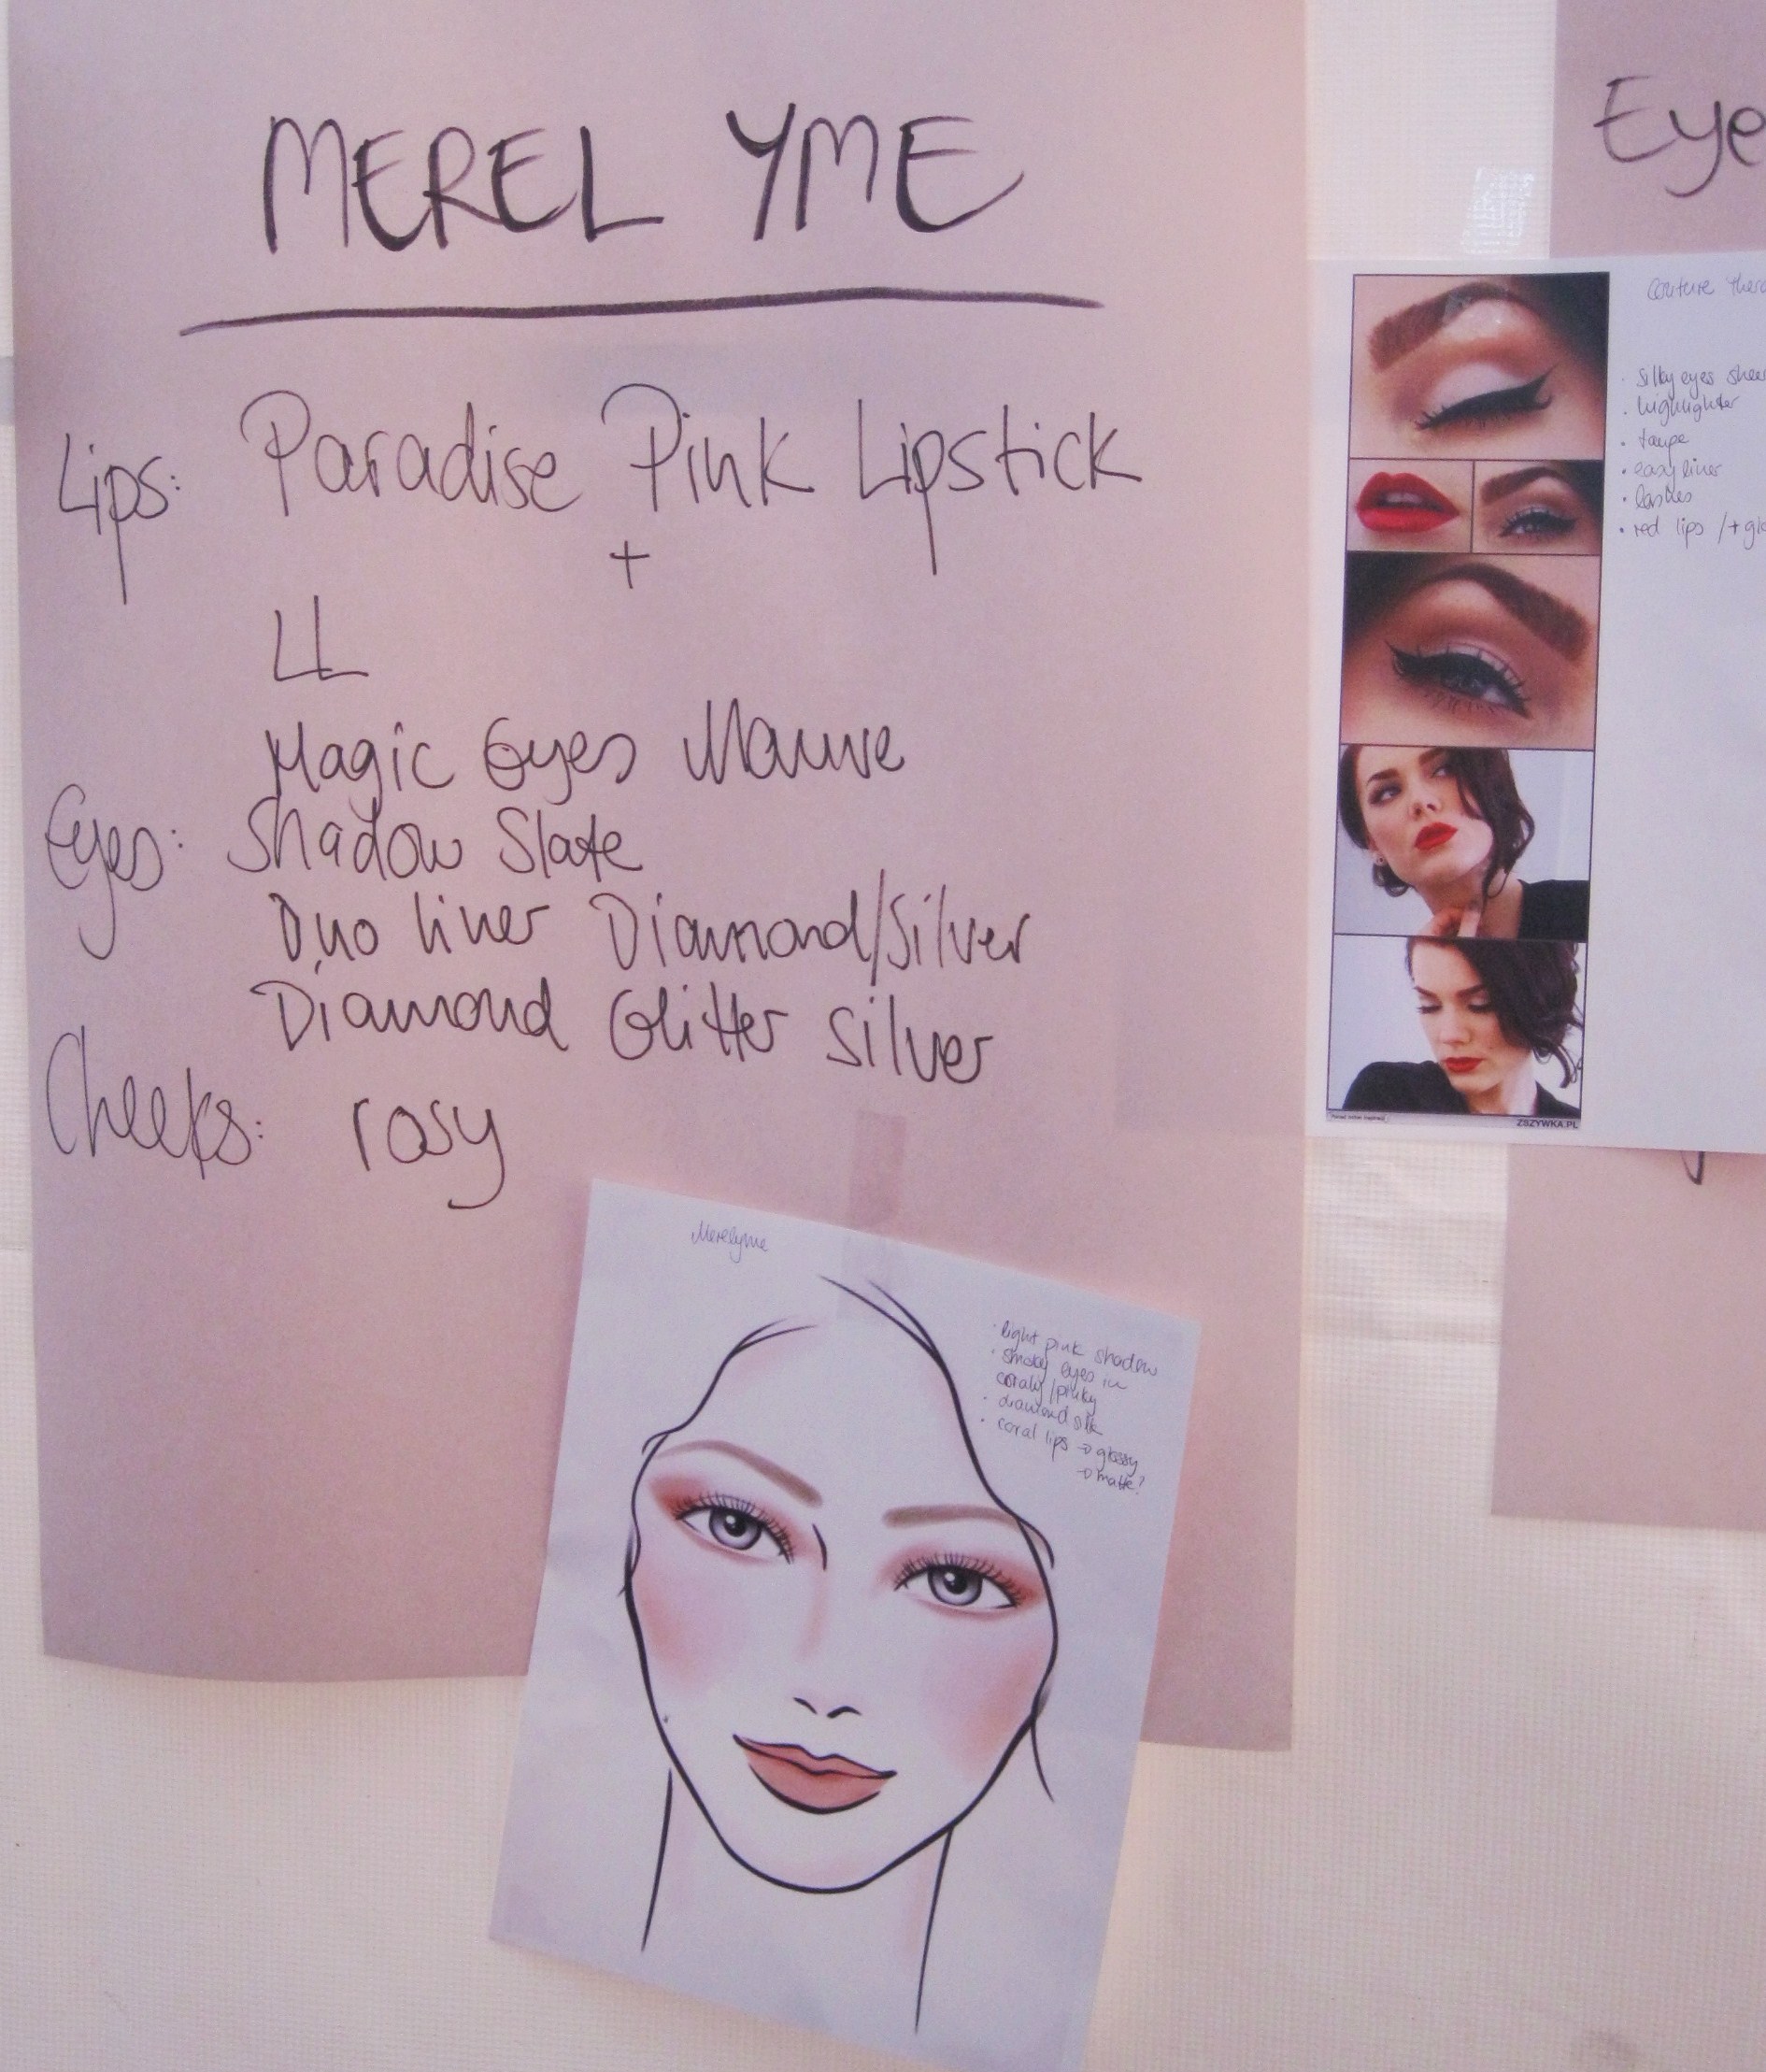 MEREL YME
Lips: Paradise Pink Lipstick
+
LL
Magic Eyes Mauve
Eyes: Shadow Slate
Duo liner Diamond/Silver
Diamond Glitter silver
Cheeks: rosy
Merelyme
· light pink shadow
· smoky eyes in
coraly/pinky
· diamond silk
· coral lips → glossy
→ matte?
Eye
Couture
· silky eyes
· highlighter
· taupe
· easy liner
· lashes
· red lips /+
ZSZYWKA.PL